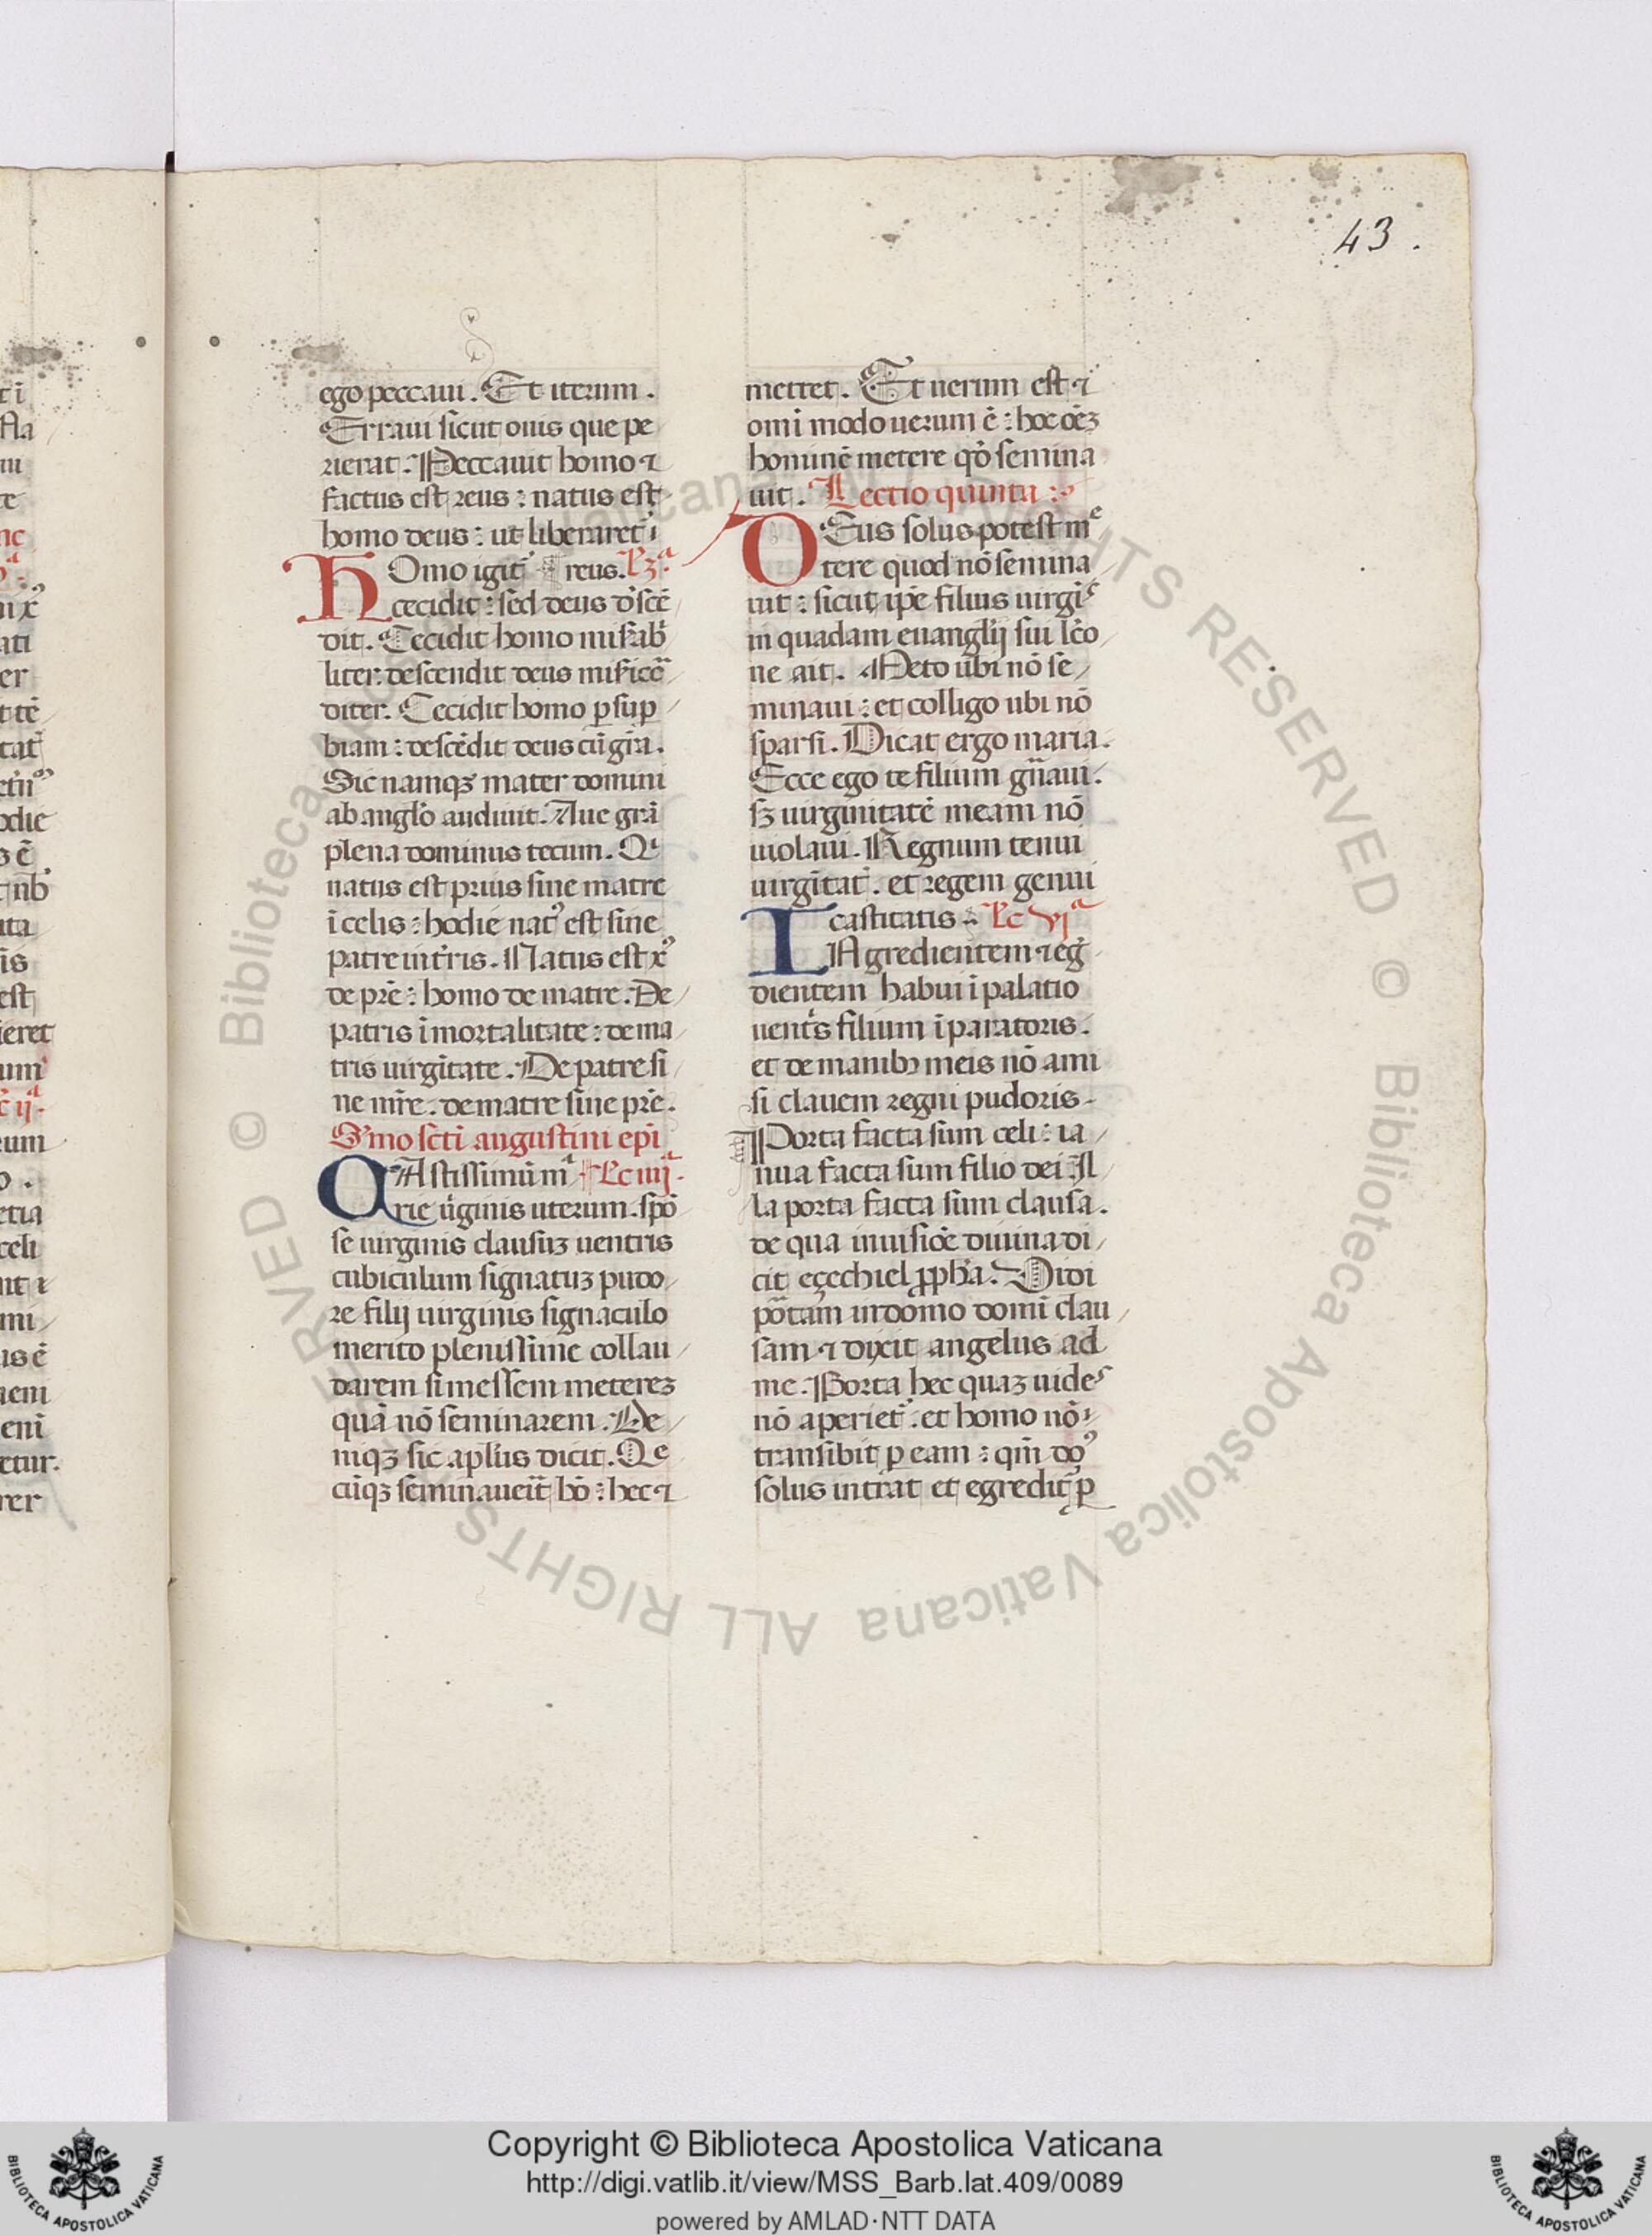 43.
ego peccaui. Et iterum.
Erraui sicut ouis que pe
rierat. Peccauit homo ⁊
factus est reus : natus est
homo deus : ut liberaret᷑
Homo igit᷑ reus. Lꝫª
cecidit : sed deus d̓scē
dit. Cecidit homo mis̓ab̓
liter: descendit deus mis̓icor̄
diter. Cecidit homo ꝑ suꝑ
biam : descēdit deus cū gr̄a.
Sic namqꝫ mater domini
ab angl̓o audiuit. Aue gr̄a
plena dominus tecum. Qⁱ
natus est prius sine matre
ī celis : hodie natꝰ est sine
patre in tr̓is. Natus est xꝰ
de pr̄e : homo de matre. De
patris īmortalitate : de ma
tris uirgītate. De patre si
ne mr̄e. de matre sine pr̄e.
S̓mo sc̄ti augustini epī
CAstissimū mª Lc iiijª.
rie u̓ginis uterum. spō
se uirginis clausuꝫ uentris
cubiculum signatuꝫ pudo
re filij uirginis signaculo
merito plenissime collau
darem si messem metereꝫ
quā nō seminarem. De
niqꝫ sic apl̄us dicit. Qᵉ
cūqꝫ seminauer̄it hō : hec ⁊
mettet. Et uerum est ⁊
omī modo uerum ē : hoc oēꝫ
hominē metere qd̓ semina
uit. Lectio quinta :
DEus solus potest mᵉ
tere quod nō semina
uit : sicut ip̄e filius uirgīˢ
in quadam euanglij sui lc̄o
ne ait. Meto ubi nō se
minaui : et colligo ubi nō
sparsi. Dicat ergo maria.
Ecce ego te filium gn̄aui.
sꝫ uirginitatē meam nō
uiolaui. Regnum tenui
uirgītat̓. et regem genui
castitatis. Lc vjª
INgredientem ⁊ eg̓
dientem habui ī palatio
uent̓s filium īparatoris.
et de manibꝫ meis nō ami
si clauem regni pudoris.
Porta facta sum celi : ia
nua facta sum filio dei. Il
la porta facta sum clausa.
de qua in uisiōe diuina di
cit eçechiel ꝓph̄a. Uidi
por̄tam in domo domī clau
sam ⁊ dixit angelus ad
me. Porta hec quaꝫ uideˢ
nō aperiet᷑. et homo nō
transibit ꝑ eam : qm̄ do̓ꝰ
solus intrat et egredit᷑ ꝑ
Copyright © Biblioteca Apostolica Vaticana
http://digi.vatlib.it/view/MSS_Barb.lat.409/0089
powered by AMLAD·NTT DATA
BIBLIOTECA APOSTOLICA VATICANA
BIBLIOTECA APOSTOLICA VATICANA